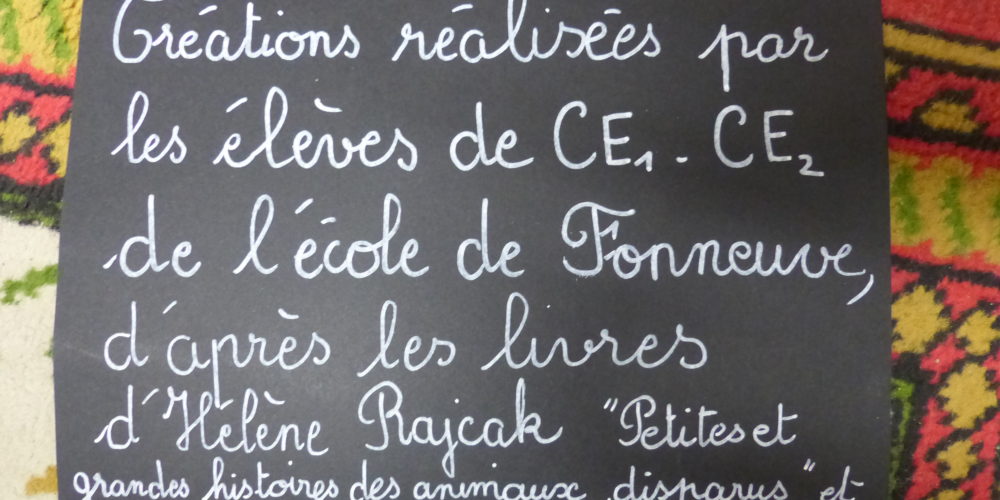 Créations réalisées par
les élèves de CE1. CE2
de l'école de Fonneuve,
d'après les livres
d'Hélène Rajcak "Petites et
grandes histoires des animaux disparus" et